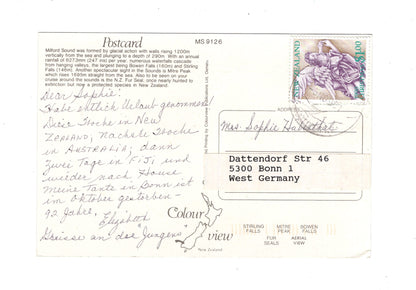 Postcard
MS 9126
Milford Sound was formed by glacial action with walls rising 1200m
vertically from the sea and plunging to a depth of 290m. With an annual
rainfall of 6273mm (247 ins) per year, numerous waterfalls cascade
from hanging valleys, the largest being Bowen Falls (160m) and Stirling
Falls (146m). Another spectacular sight in the Sounds is Mitre Peak
which rises 1695m straight from the sea. Also to be seen on your
cruise around the sounds is the N.Z. Fur Seal, once nearly hunted
to extinction but now a protected species in New Zealand.
Dear Sophie:
Habe etlich Urlaub genommen!
Diese Woche in New
Zealand; Nächste Woche
in Australia; dann
zwei Tage in Fiji und
wieder nach House
Meine Tante in Bonn ist
im Oktober gestorben -
92 Jahre.
Elizabeth
Grüsse an das "Jungens"
NEW ZEALAND
$1.00
ADDRESS
Mrs. Sophie
Dattendorf Str 46
5300 Bonn 1
West Germany
Colour
view
New Zealand
STIRLING FALLS
MITRE PEAK
BOWEN FALLS
FUR SEALS
AERIAL VIEW